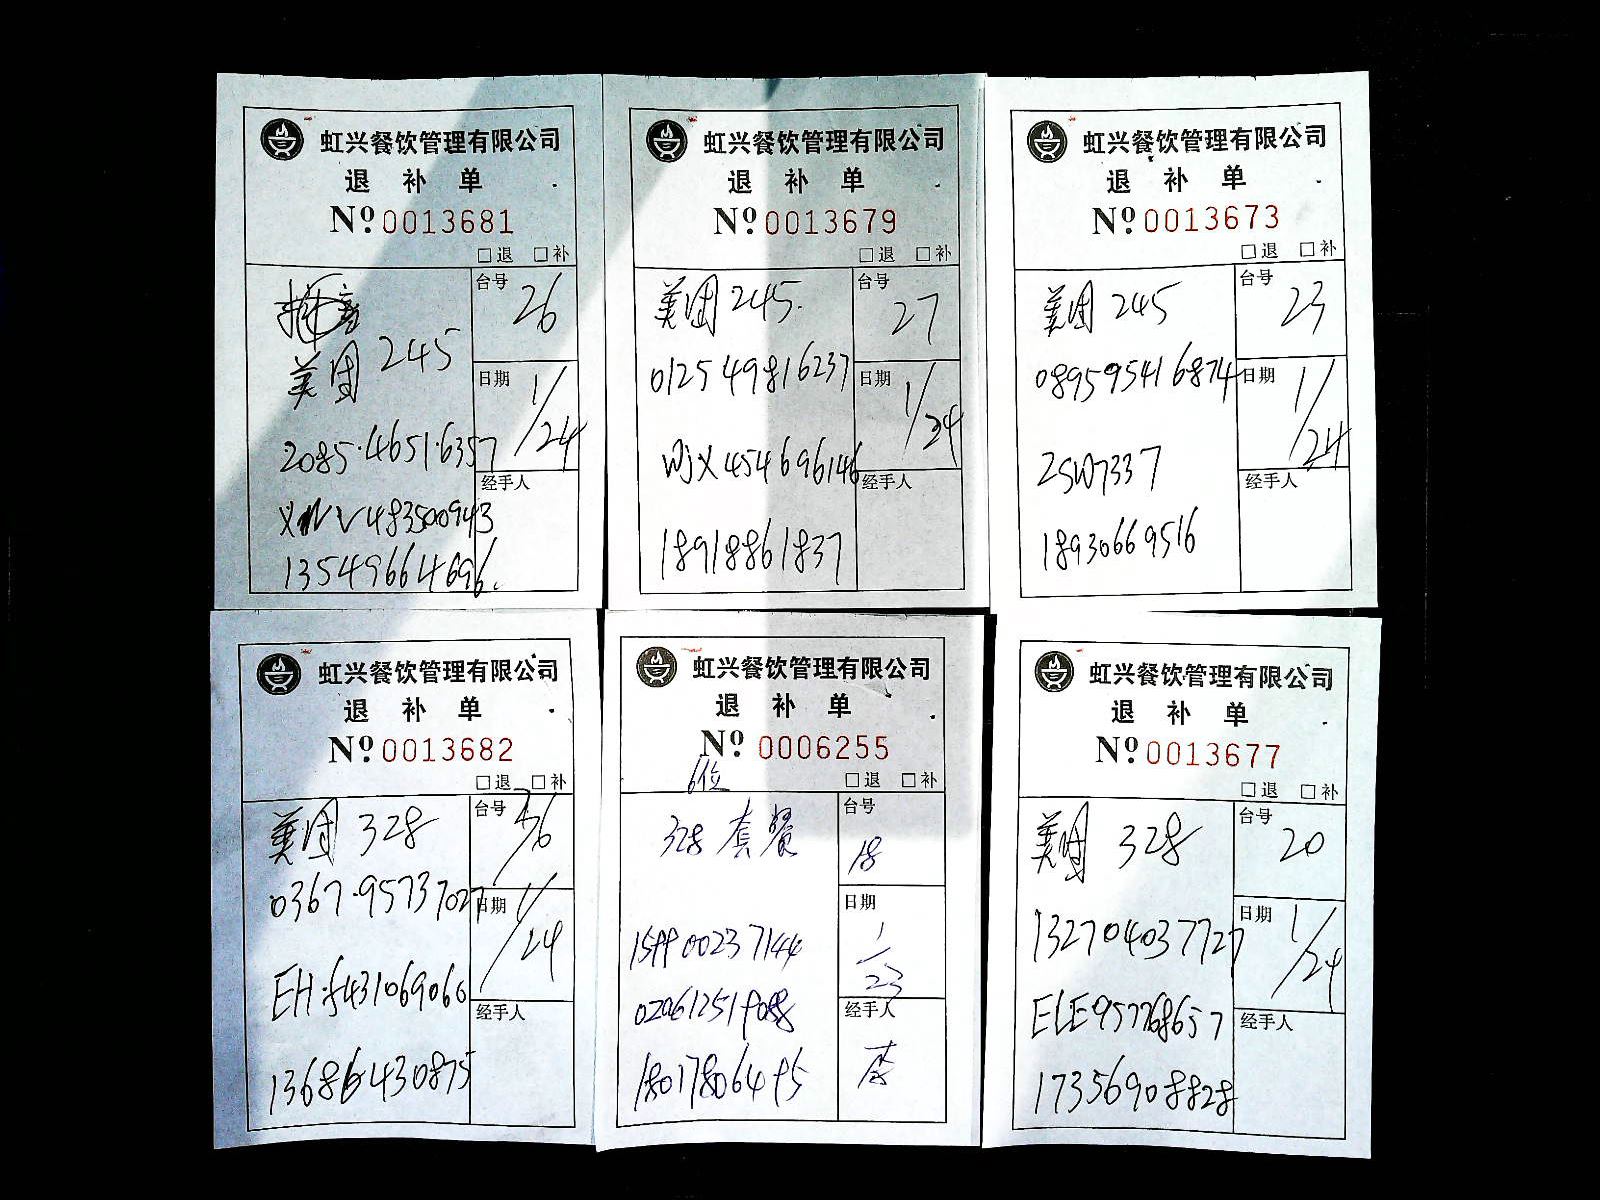 虹兴餐饮管理有限公司
退 补 单
Nº 0013681
□退 □补
台号 26
美团 245
日期 1/24
2085·4651·6357
经手人
XWV483500943
13549664696.
虹兴餐饮管理有限公司
退 补 单
Nº 0013679
□退 □补
台号 27
美团 245.
012549816237
日期 1/24
WJX454696146
经手人
18918861837
虹兴餐饮管理有限公司
退 补 单
Nº 0013673
□退 □补
台号 23
美团 245
089595416874
日期 1/24
ZSW7337
经手人
18930669516
虹兴餐饮管理有限公司
退 补 单
Nº 0013682
□退 □补
台号 36
美团 328
0367·95737027
日期 1/24
经手人
13686430875
虹兴餐饮管理有限公司
退 补 单
Nº 0006255
6位
□退 □补
台号 18
328 套餐
日期 1/23
159900237144
020612519088
经手人 李
18017806495
虹兴餐饮管理有限公司
退 补 单
Nº 0013677
□退 □补
台号 20
美团 328
132704037727
日期 1/24
ELE957768657
经手人
17356908828